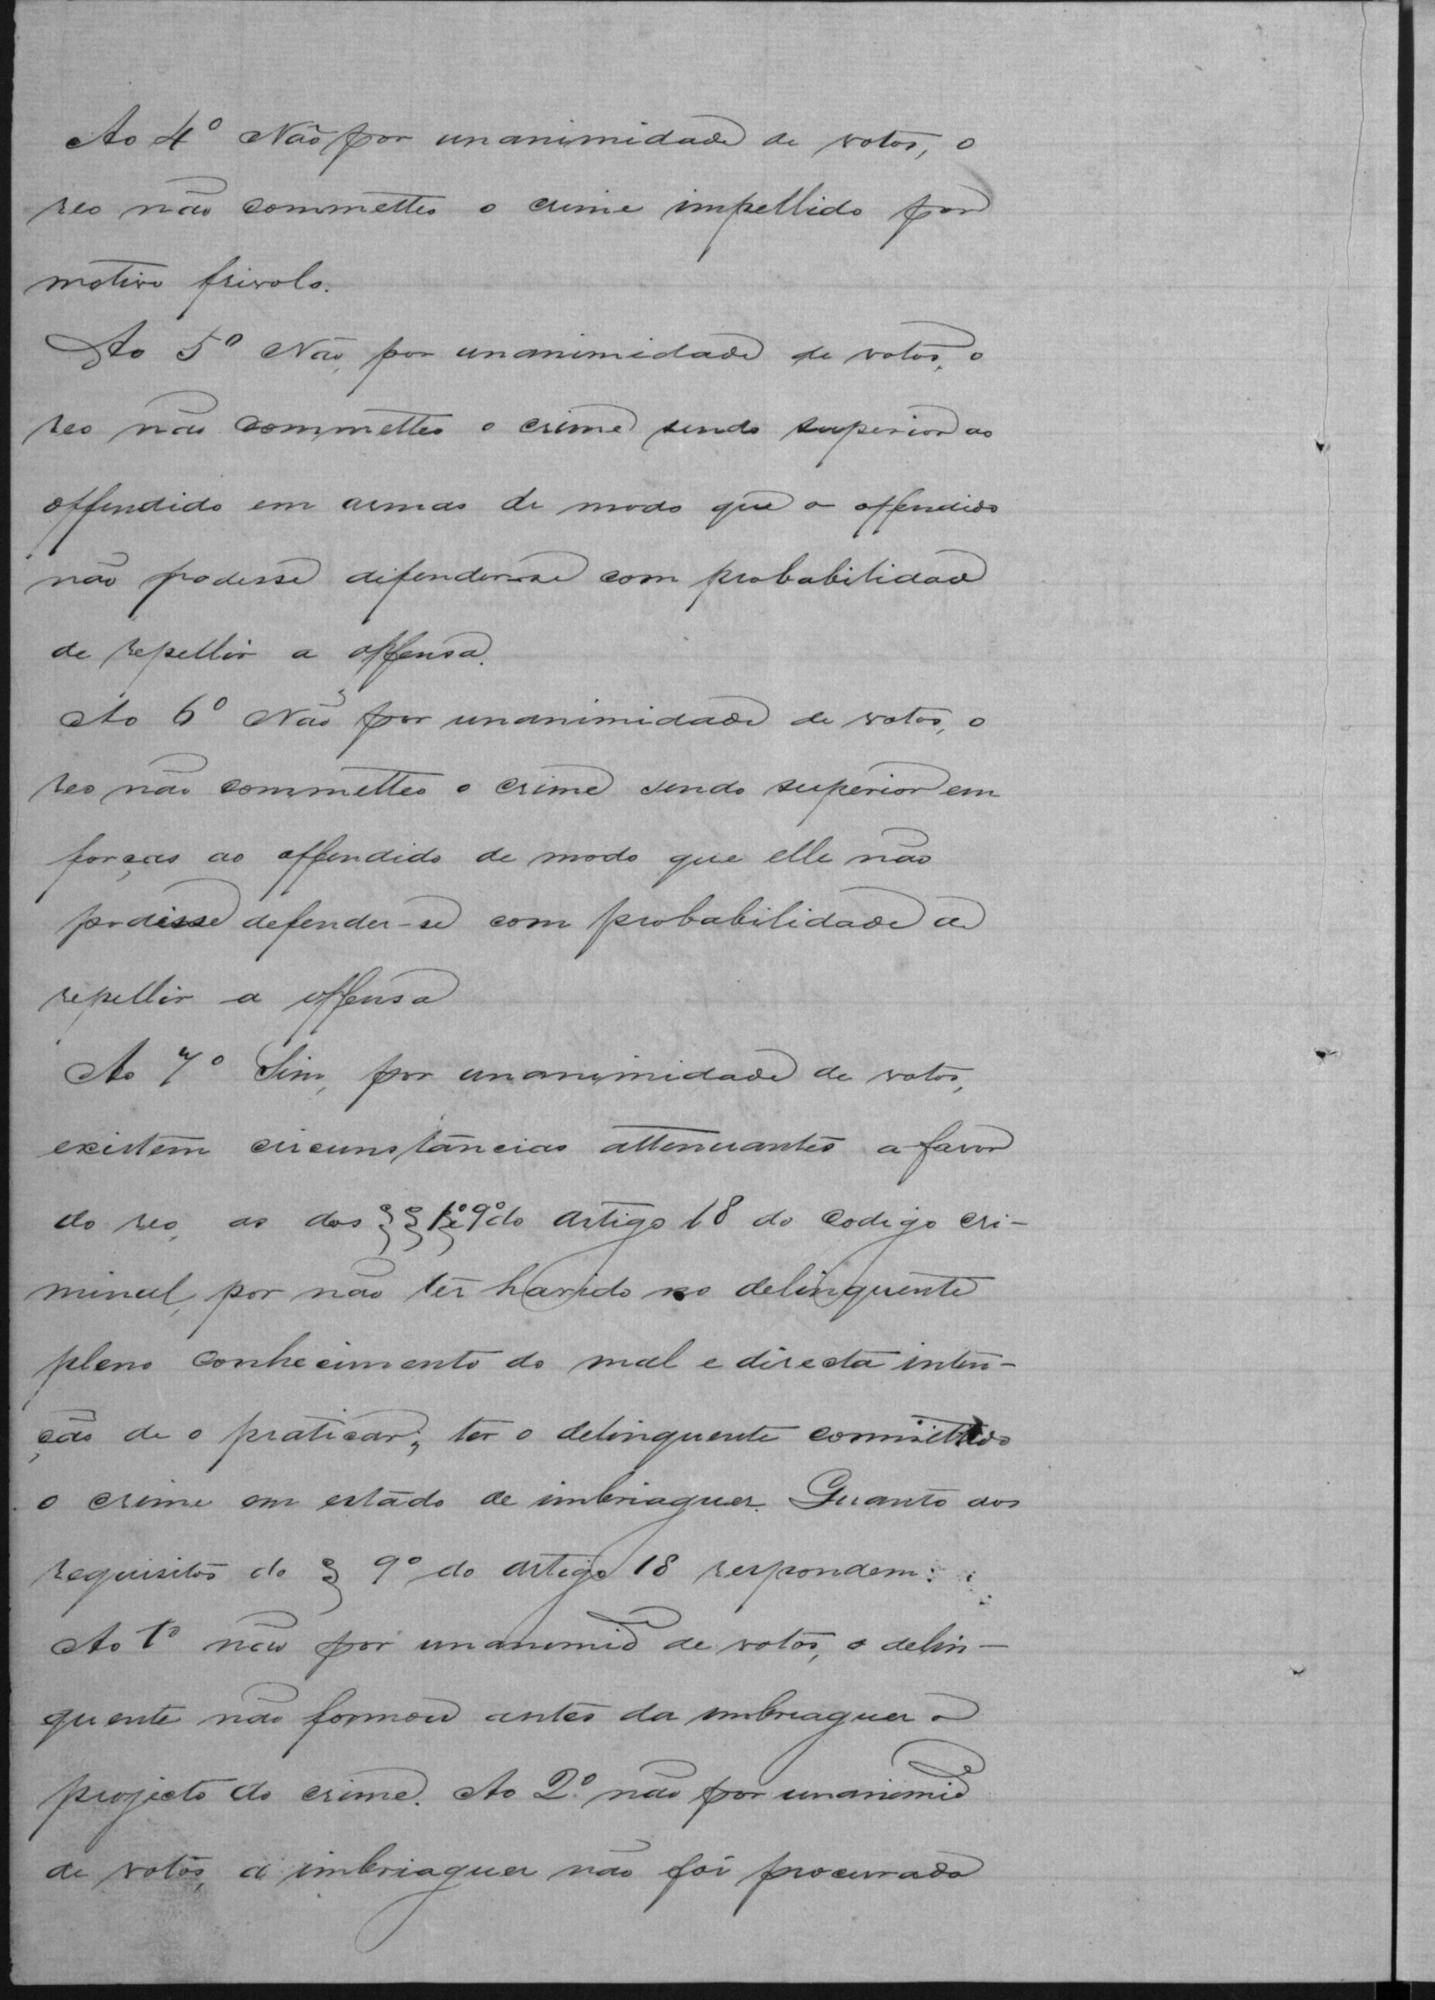 Ao 4º Não por unanimidade de votos, o
reo não commetteo o crime impellido por
motivo frivolo.
Ao 5º Não, por unanimidade de votos, o
reo não commetteo o crime sendo superior ao
offendido em armas de modo que o offendido
não podesse difender-se com probabilidade
de repellir a offensa.
Ao 6º Não, por unanimidade de votos, o
reo não commetteo o crime sendo superior em
forças ao offendido de modo que elle não
podesse defender-se com probabilidade de
repellir a offensa
Ao 7º Sim, por unanimidade de votos,
existem circunstãncias attenuantes a favor
do reo, as dos §§ 1º e 9º do artigo 18 do codigo cri-
minal, por não ter havido no delinquente
pleno conhecimento do mal e directa inten-
ção de o praticar; ter o delinquente commettido
o crime em estado de imbriaguez. Quanto aos
requisitos do § 9º do artigo 18 respondem:
Ao 1º não por unanimide de votos, o delin-
quente não formou antes da imbriaguez o
projecto do crime. Ao 2º não por unanimide
de votos, a imbriaguez não foi procurada